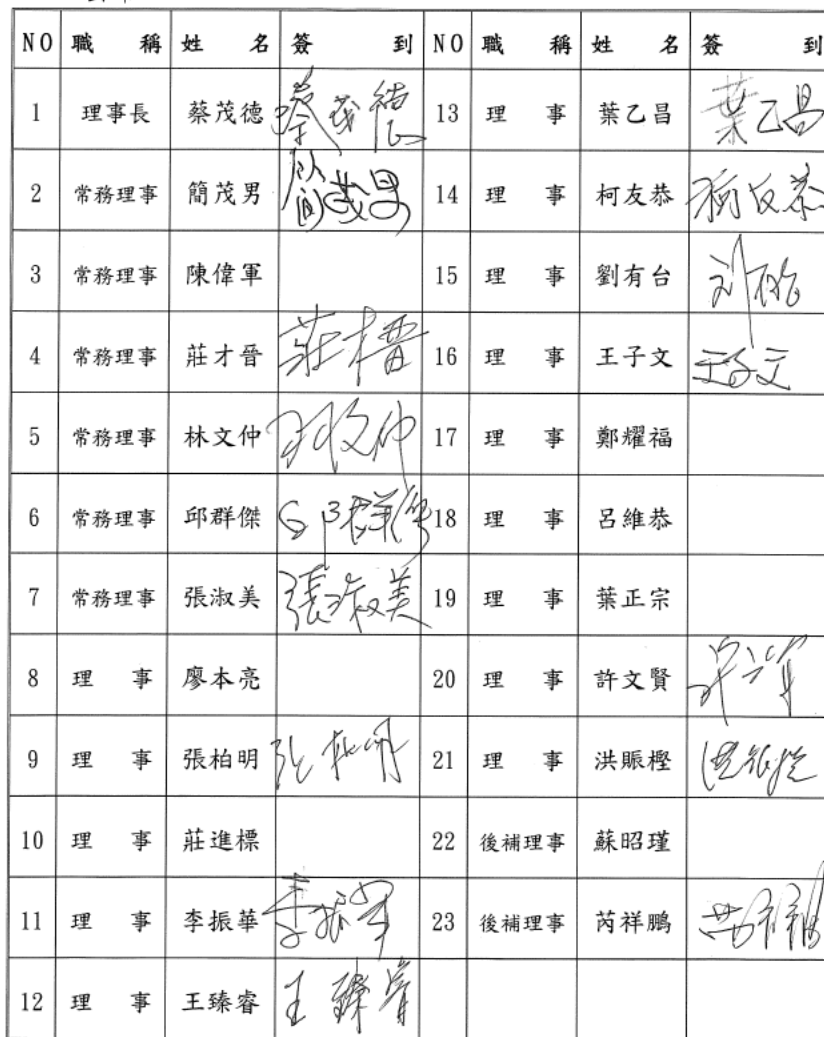 NO 職稱 姓名 簽到 NO 職稱 姓名 簽到
1 理事長 蔡茂德 蔡茂德 13 理事 葉乙昌 葉乙昌
2 常務理事 簡茂男 簡茂男 14 理事 柯友恭 柯友恭
3 常務理事 陳偉軍 15 理事 劉有台 刘有台
4 常務理事 莊才晉 莊才晉 16 理事 王子文 王子文
5 常務理事 林文仲 林文仲 17 理事 鄭耀福
6 常務理事 邱群傑 邱群傑 18 理事 呂維恭
7 常務理事 張淑美 張淑美 19 理事 葉正宗
8 理事 廖本亮 20 理事 許文賢
9 理事 張柏明 張柏明 21 理事 洪賑樫
10 理事 莊進標 22 後補理事 蘇昭瑾
11 理事 李振華 李振華 23 後補理事 芮祥鵬
12 理事 王臻睿 王臻睿